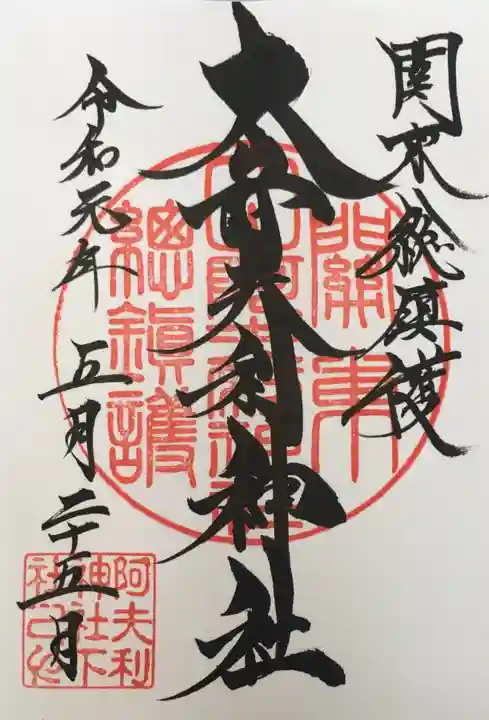 関東総鎮護
大山阿夫利神社
令和元年 五月二十五日
關東
總鎮護
阿夫利
神社下